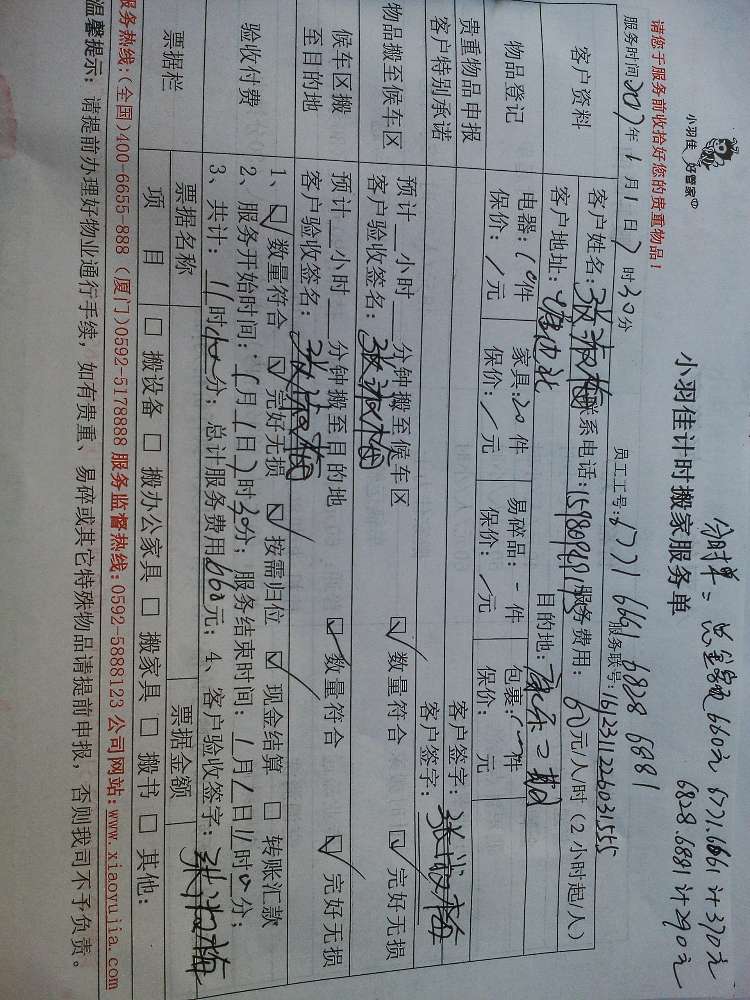 分时单：总金额660元 6771.6661计370元
6828.6881计290元
小羽佳 好管家
小羽佳计时搬家服务单
请您于服务前收拾好您的贵重物品！
员工工号：6771 6661 6828 6881
服务时间：2017年1月1日7时30分
服务联号：161231226031555
客户资料
客户姓名：张淑梅 联系电话： 服务费用：60元/人/时(2小时起/人)
客户地址： 目的地：
物品登记
电器：10件 家具：20件 易碎品：-件 包裹： 件
保价：/元 保价：/元 保价：/元 保价： 元
贵重物品申报 客户签字：
客户特别承诺 客户签字：张淑梅
物品搬至候车区
预计__小时__分钟搬至候车区 ☑数量符合 ☑完好无损
客户验收签名：张淑梅
候车区搬至目的地
预计__小时__分钟搬至目的地 ☑数量符合 ☑完好无损
客户验收签名：张淑梅
验收付费
1、☑数量符合 ☑完好无损 ☑按需归位 ☑现金结算 □转账汇款
2、服务开始时间：1月1日7时30分；服务结束时间：1月1日11时10分；
3、共计：11时 分；总计服务费用660元；4、客户验收签字：张淑梅
票据栏
票据名称 票据金额
项目 □搬设备 □搬办公家具 □搬家具 □搬书 □其他：
服务热线：(全国)400-6655-888 (厦门)0592-5178888 服务监督热线：0592-5888123 公司网站：www.xiaoyujia.com
温馨提示：请提前办理好物业通行手续，如有贵重、易碎或其它特殊物品请提前申报，否则我司不予负责。